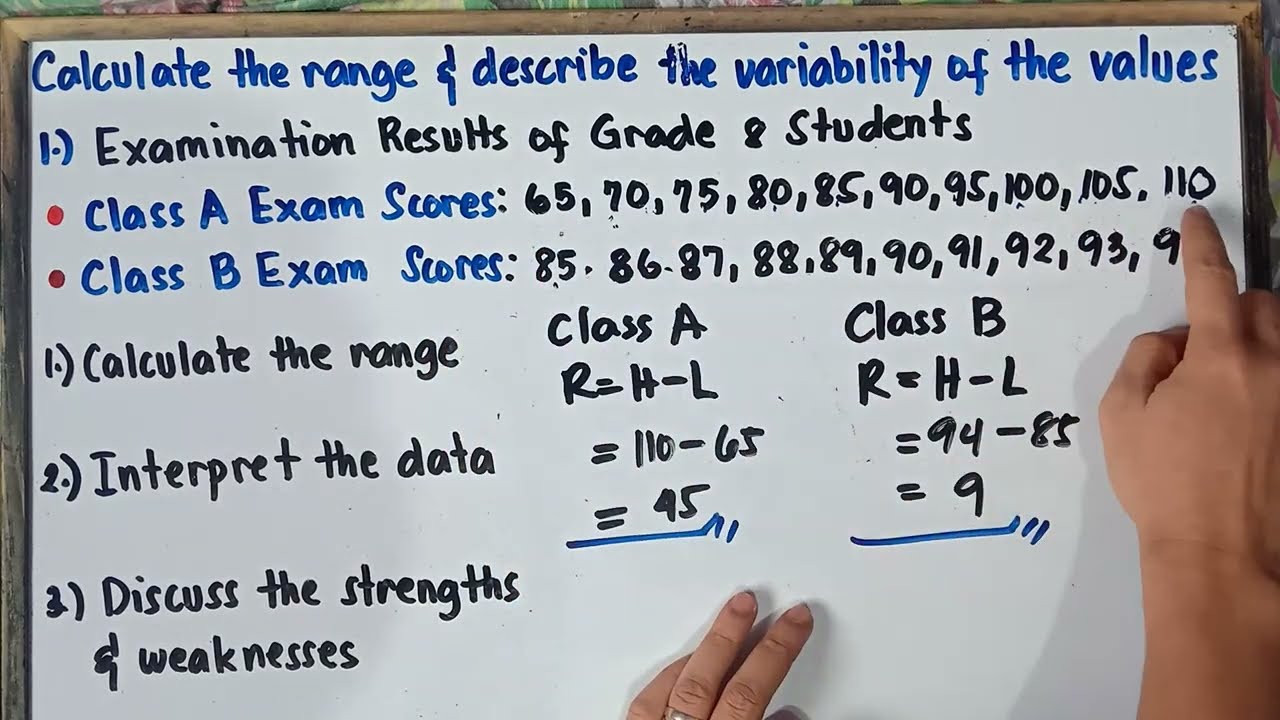 Calculate the range & describe the variability of the values
1.) Examination Results of Grade 8 Students
• Class A Exam Scores: 65, 70, 75, 80, 85, 90, 95, 100, 105. 110
• Class B Exam Scores: 85. 86. 87, 88, 89, 90, 91, 92, 93, 9
1.) Calculate the range
Class A
R = H - L
= 110 - 65
= 45
Class B
R = H - L
= 94 - 85
= 9
2.) Interpret the data
3.) Discuss the strengths
& weaknesses